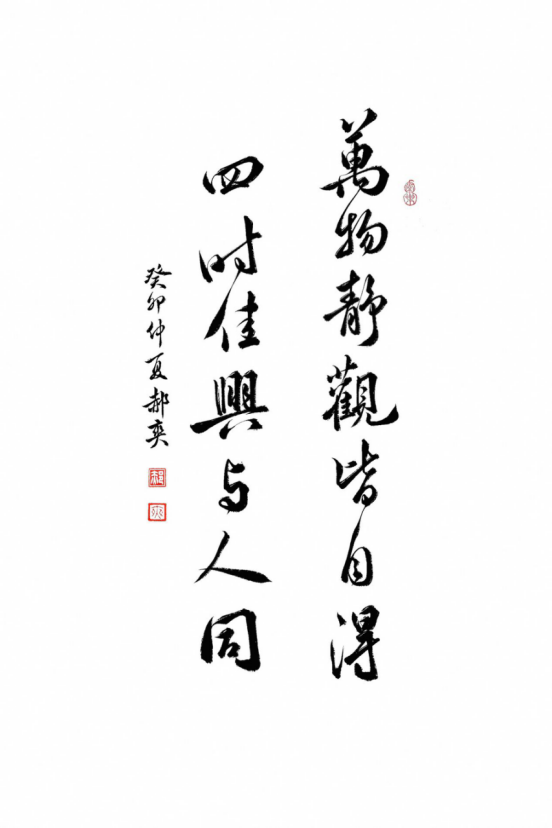 萬物静觀皆自得
四时佳興与人同
癸卯仲夏郝奕